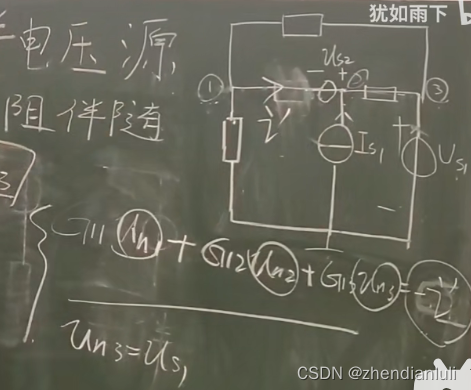 犹如雨下
电压源
阻伴随
①
U_{S2}
- +
②
③
i
I_{S1}
+
U_{S1}
-
G11 U_{n1} + G12 U_{n2} + G13 U_{n3} = -i
U_{n3} = U_{S1}
CSDN @zhendianluli